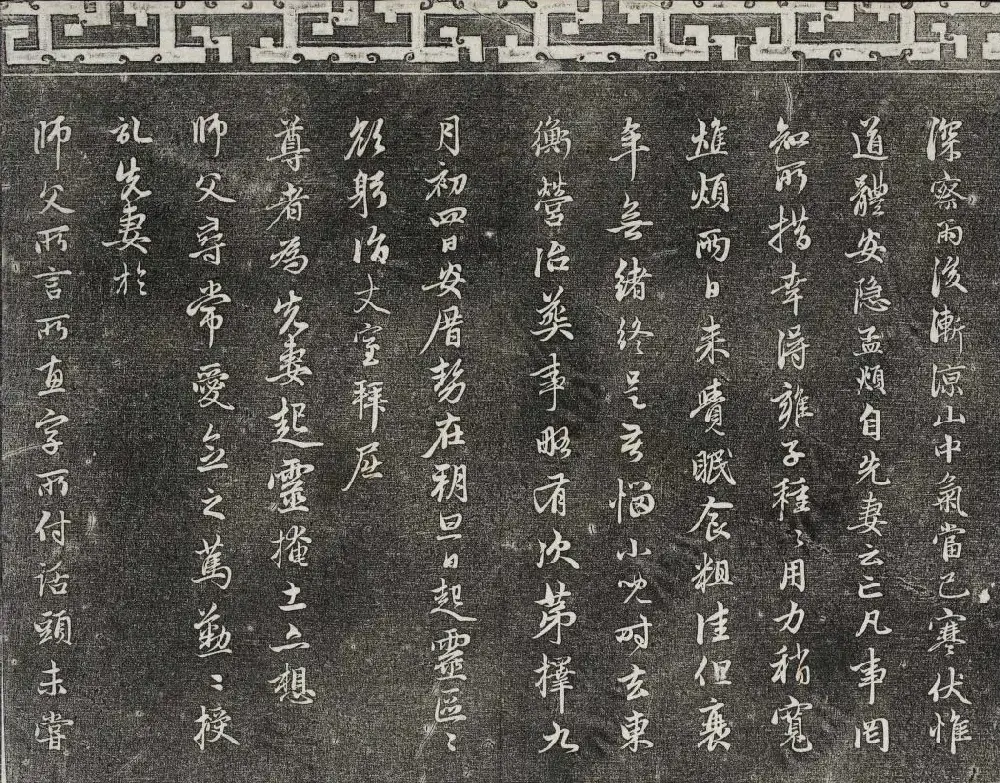 深察雨後漸涼山中氣當已寒伏惟
道體安隱孟頫自先妻云亡凡事罔
知所措幸得雍子種〻用力稍寬
憔煩兩日來覺眠食粗佳但衰
年無緒終是苦惱小兒時去東
衡營治葬事略有次第擇九
月初四日安厝勢在朔旦日起靈區〻
欲躬詣丈室拜屈
尊者為先妻起靈掩土亦想
師父尋常愛念之篤懃〻授
記先妻於
師父所言所惠字所付話頭未嘗